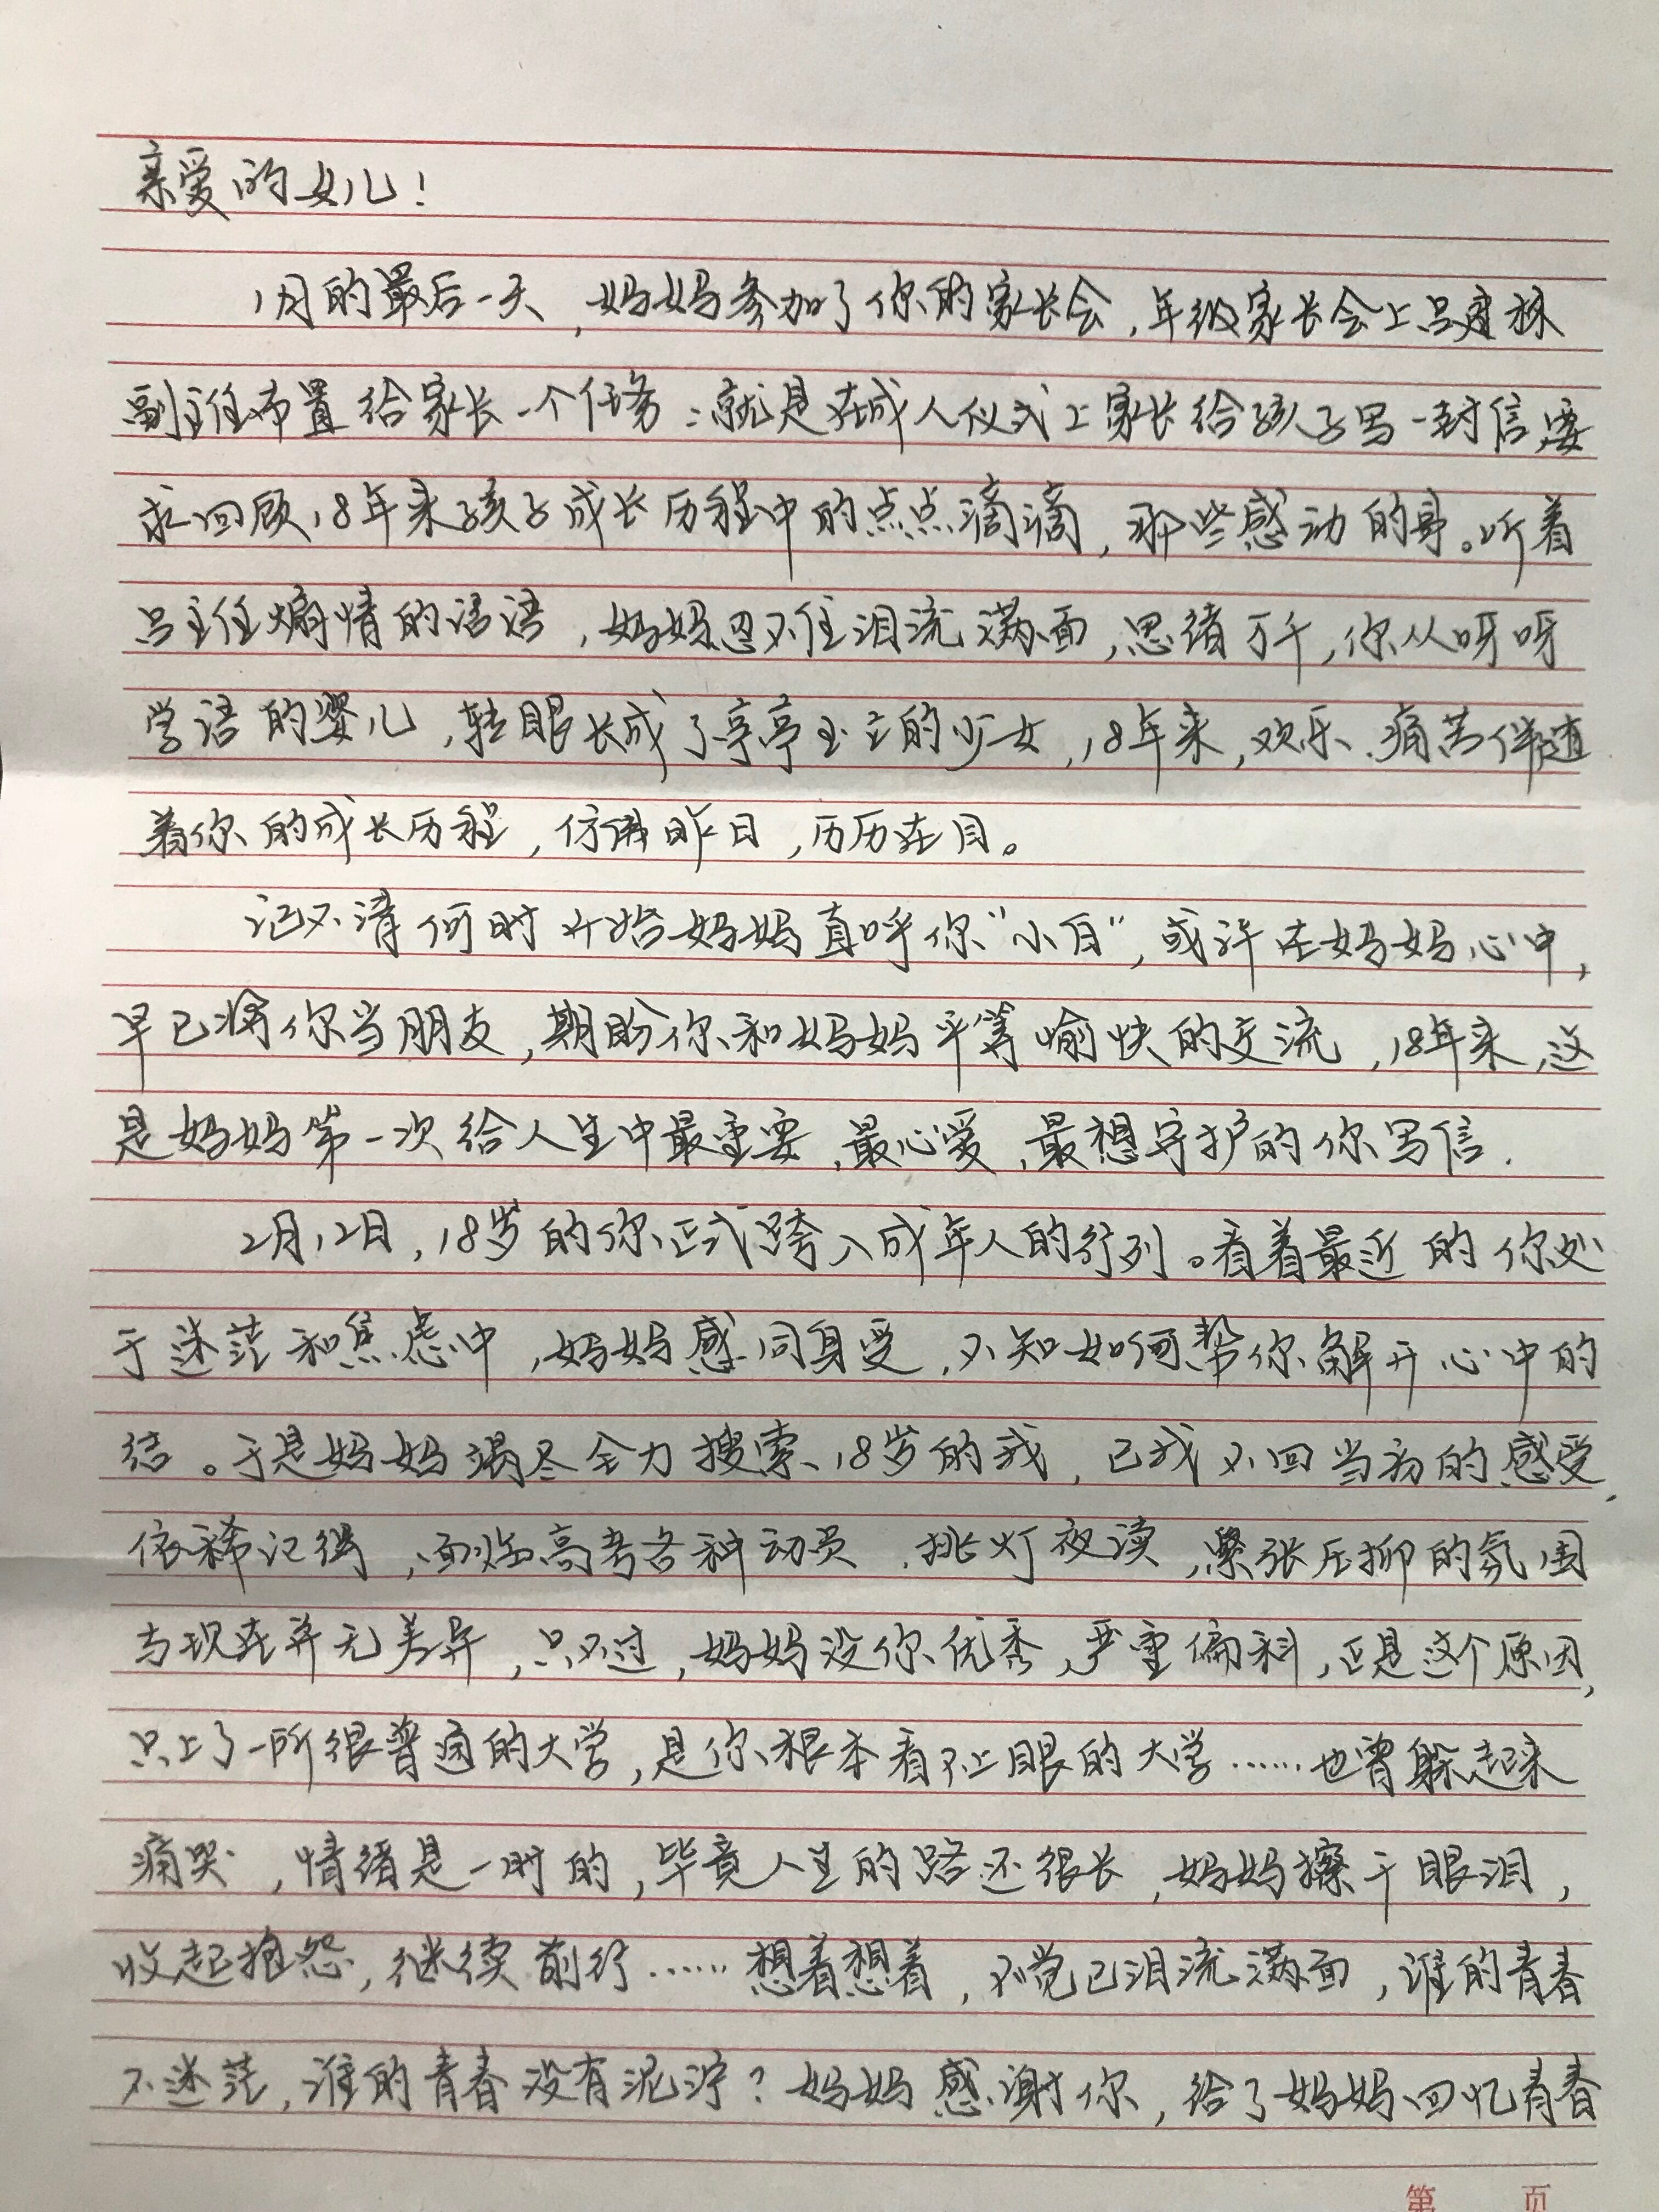 亲爱的女儿！
1月的最后一天，妈妈参加了你的家长会，年级家长会上吕建林
副主任布置给家长一个任务：就是在成人仪式上家长给孩子写一封信，要
求回顾18年来孩子成长历程中的点点滴滴，那些感动的事。听着
吕主任煽情的话语，妈妈忍不住泪流满面，思绪万千，你从呀呀
学语的婴儿，转眼长成了亭亭玉立的少女，18年来，欢乐、痛苦伴随
着你的成长历程，仿佛昨日，历历在目。
记不清何时开始妈妈直呼你“小白”，或许在妈妈心中，
早已将你当朋友，期盼你和妈妈平等愉快的交流，18年来，这
是妈妈第一次给人生中最重要，最心爱，最想守护的你写信.
2月12日，18岁的你正式跨入成年人的行列。看着最近的你处
于迷茫和焦虑中，妈妈感同身受，不知如何帮你解开心中的
结。于是妈妈竭尽全力搜索、18岁的我，已找不回当初的感受，
依稀记得，面临高考各种动员、挑灯夜读，紧张压抑的氛围
与现在并无差异，只不过，妈妈没你优秀，严重偏科，正是这个原因，
只上了一所很普通的大学，是你根本看不上眼的大学……也曾躲起来
痛哭，情绪是一时的，毕竟人生的路还很长，妈妈擦干眼泪，
收起抱怨，继续前行……想着想着，不觉已泪流满面，谁的青春
不迷茫，谁的青春没有泥泞？妈妈感谢你，给了妈妈回忆青春
第 页